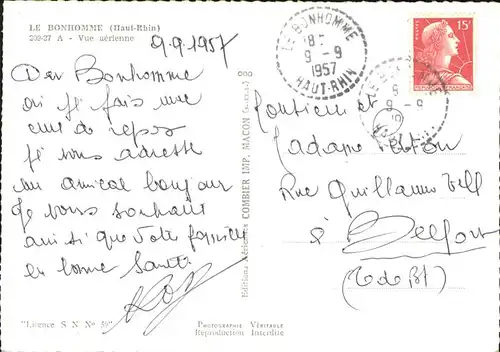 LE BONHOMME (Haut-Rhin)
209-27 A - Vue aérienne
9.9.1957
Du Bonhomme
où je fais une
cure de repos
je vous adresse
un amical bonjour
Je vous souhaite
ainsi que votre famille
en bonne santé
"Licence S N N° 59"
Editions Aériennes COMBIER IMP. MACON
PHOTOGRAPHIE VÉRITABLE
Reproduction Interdite
LE BONHOMME
18
9-9
1957
HAUT-RHIN
15F
9-9
Monsieur et
Madame
Rue Guillaume Tell
à Belfort
(T de Bt)